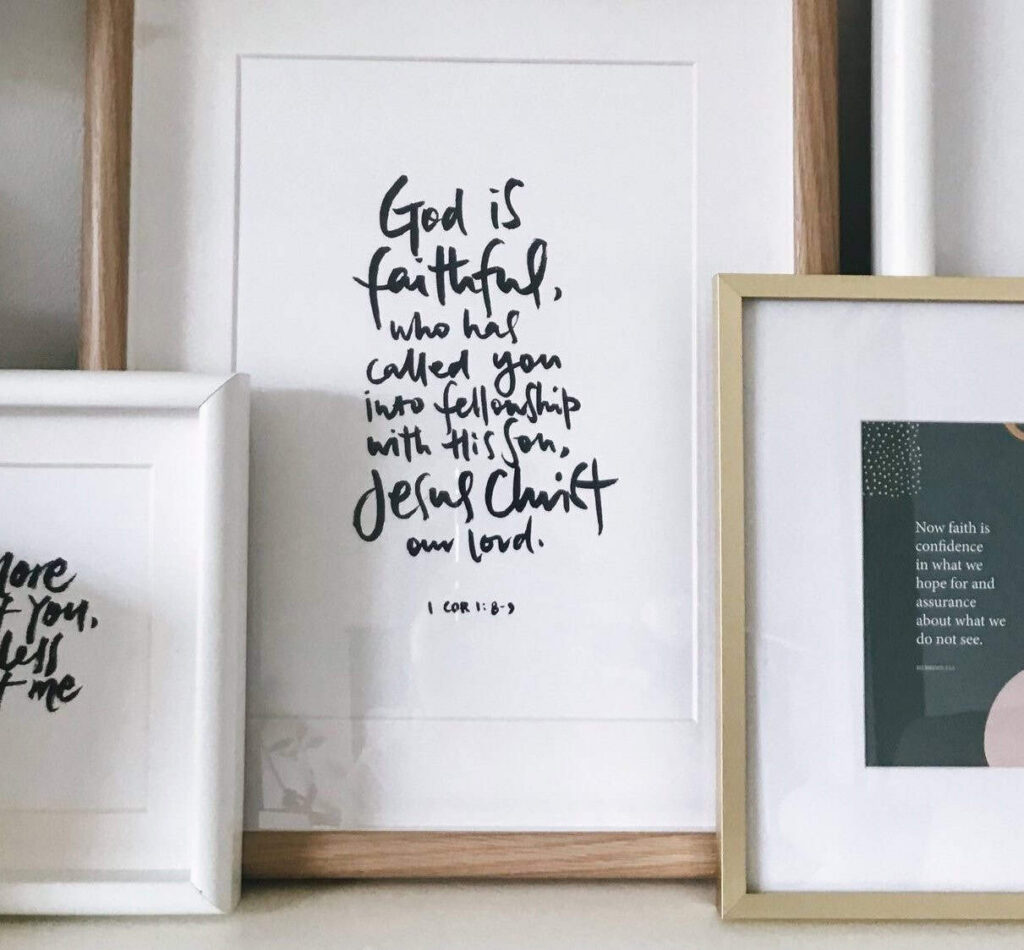 More
of You,
less
of me
God is
faithful,
who has
called you
into fellowship
with His Son,
Jesus Christ
our Lord.
1 COR 1:8-9
Now faith is
confidence
in what we
hope for and
assurance
about what we
do not see.